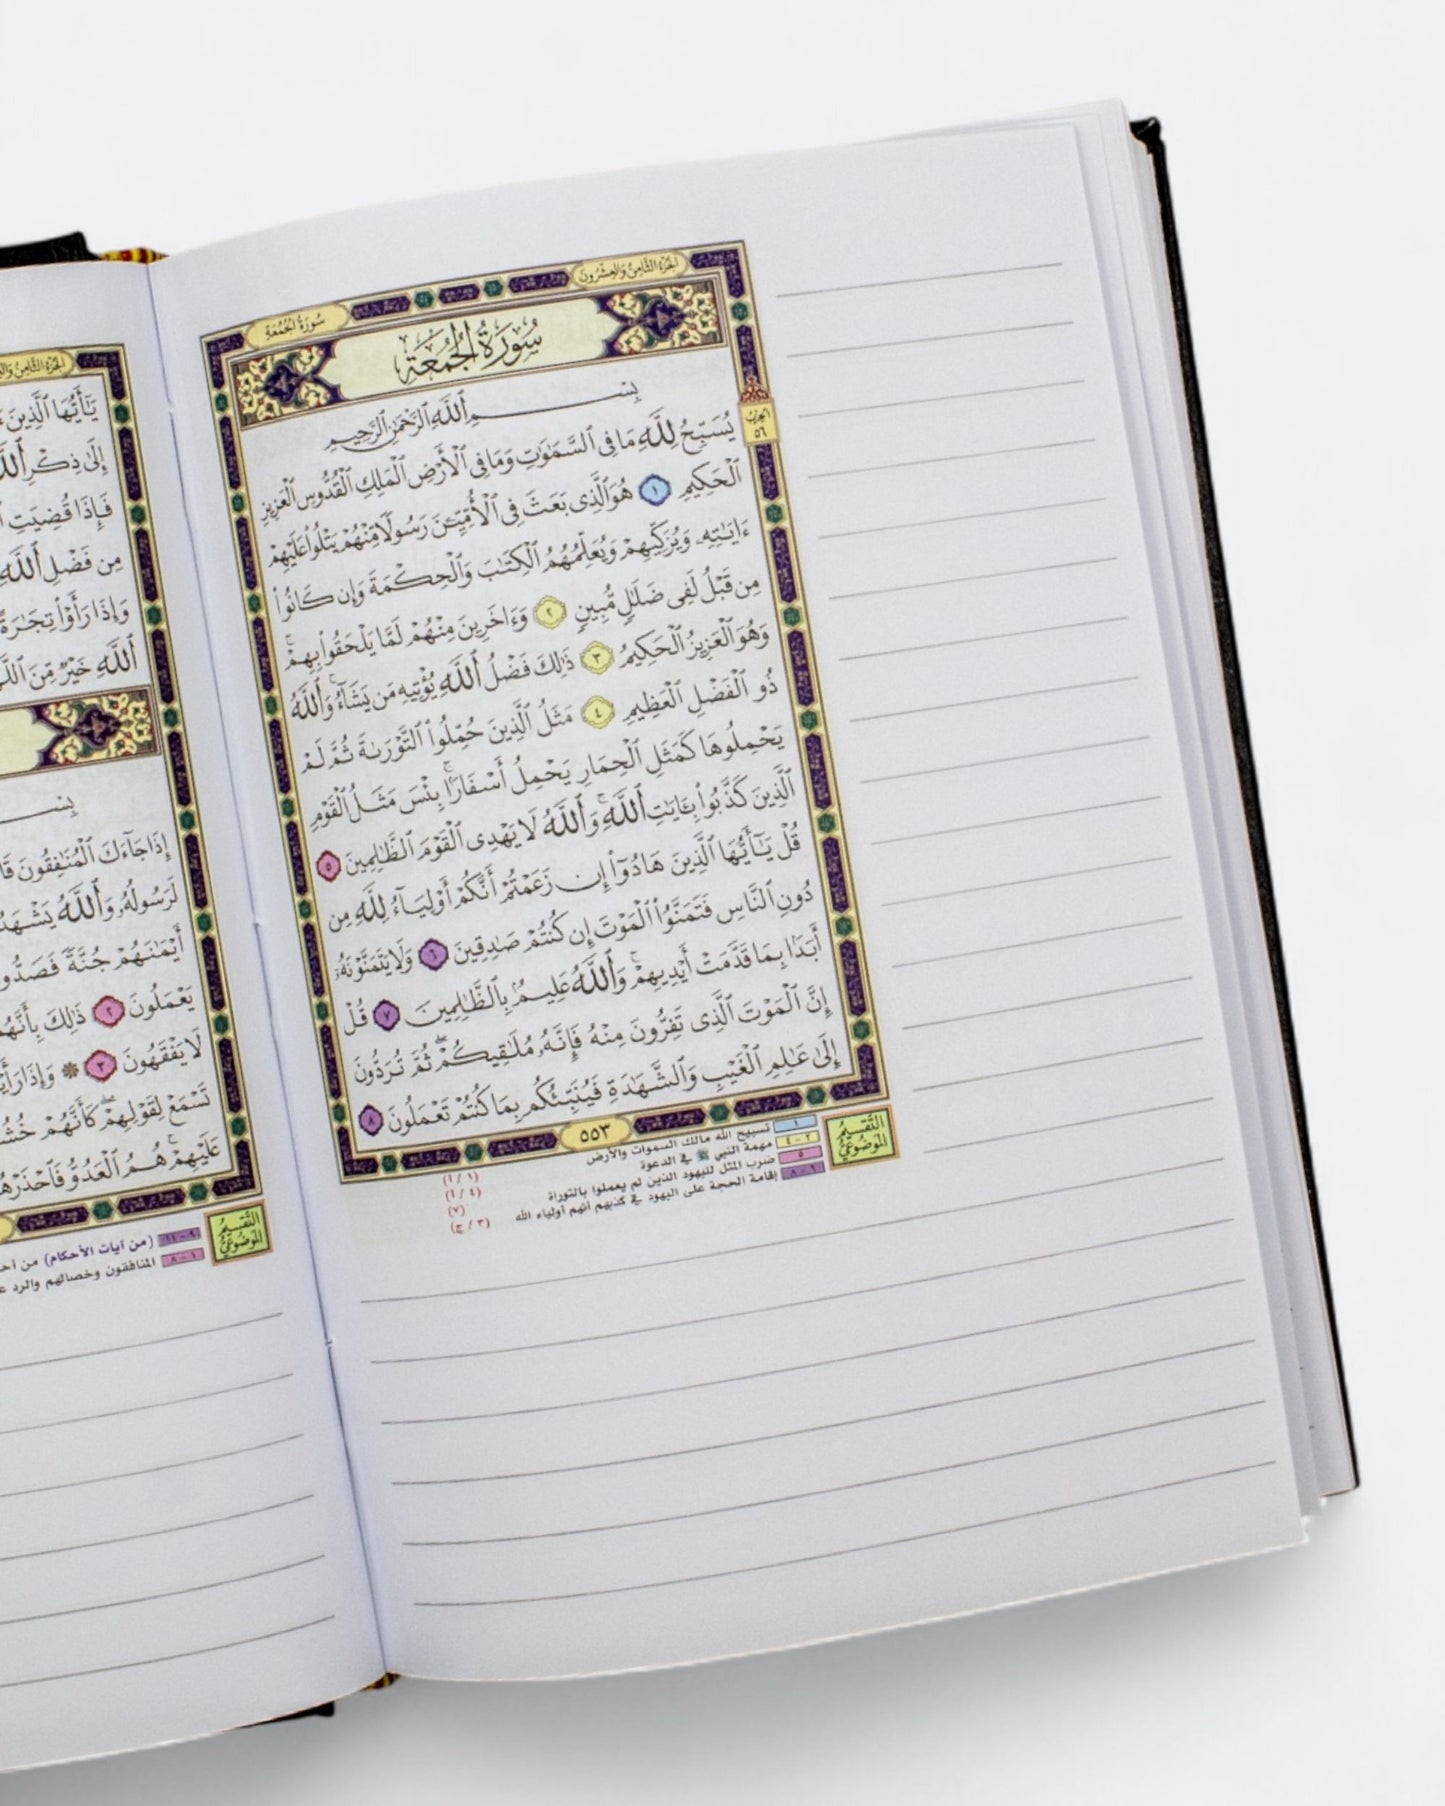 الجزء الثامن والعشرون
سورة الجمعة
سُورَةُ الجُمُعَةِ
الحزب
٥٦
بِسْمِ ٱللَّهِ ٱلرَّحْمَٰنِ ٱلرَّحِيمِ
يُسَبِّحُ لِلَّهِ مَا فِي ٱلسَّمَٰوَٰتِ وَمَا فِي ٱلْأَرْضِ ٱلْمَلِكِ ٱلْقُدُّوسِ ٱلْعَزِيزِ
ٱلْحَكِيمِ ١ هُوَ ٱلَّذِي بَعَثَ فِي ٱلْأُمِّيِّـۧنَ رَسُولًا مِّنْهُمْ يَتْلُوا۟ عَلَيْهِمْ
ءَايَٰتِهِۦ وَيُزَكِّيهِمْ وَيُعَلِّمُهُمُ ٱلْكِتَٰبَ وَٱلْحِكْمَةَ وَإِن كَانُوا۟
مِن قَبْلُ لَفِي ضَلَٰلٍ مُّبِينٍ ٢ وَءَاخَرِينَ مِنْهُمْ لَمَّا يَلْحَقُوا۟ بِهِمْ ۚ
وَهُوَ ٱلْعَزِيزُ ٱلْحَكِيمُ ٣ ذَٰلِكَ فَضْلُ ٱللَّهِ يُؤْتِيهِ مَن يَشَآءُ ۚ وَٱللَّهُ
ذُو ٱلْفَضْلِ ٱلْعَظِيمِ ٤ مَثَلُ ٱلَّذِينَ حُمِّلُوا۟ ٱلتَّوْرَىٰةَ ثُمَّ لَمْ
يَحْمِلُوهَا كَمَثَلِ ٱلْحِمَارِ يَحْمِلُ أَسْفَارًۢا ۚ بِئْسَ مَثَلُ ٱلْقَوْمِ
ٱلَّذِينَ كَذَّبُوا۟ بِـَٔايَٰتِ ٱللَّهِ ۚ وَٱللَّهُ لَا يَهْدِي ٱلْقَوْمَ ٱلظَّٰلِمِينَ ٥
قُلْ يَٰٓأَيُّهَا ٱلَّذِينَ هَادُوٓا۟ إِن زَعَمْتُمْ أَنَّكُمْ أَوْلِيَآءُ لِلَّهِ مِن
دُونِ ٱلنَّاسِ فَتَمَنَّوُا۟ ٱلْمَوْتَ إِن كُنتُمْ صَٰدِقِينَ ٦ وَلَا يَتَمَنَّوْنَهُۥٓ
أَبَدًۢا بِمَا قَدَّمَتْ أَيْدِيهِمْ ۚ وَٱللَّهُ عَلِيمٌۢ بِٱلظَّٰلِمِينَ ٧ قُلْ
إِنَّ ٱلْمَوْتَ ٱلَّذِي تَفِرُّونَ مِنْهُ فَإِنَّهُۥ مُلَٰقِيكُمْ ۖ ثُمَّ تُرَدُّونَ
إِلَىٰ عَٰلِمِ ٱلْغَيْبِ وَٱلشَّهَٰدَةِ فَيُنَبِّئُكُم بِمَا كُنتُمْ تَعْمَلُونَ ٨
٥٥٣
التقسيم
الموضوعي
١ تسبيح الله مالك السموات والأرض (١ / أ)
٢ - ٤ مهمة النبي ﷺ في الدعوة (٤ / أ)
٥ ضرب المثل لليهود الذين لم يعملوا بالتوراة (٧)
٦ - ٨ إقامة الحجة على اليهود في كذبهم أنهم أولياء الله (٣ / ج)
الجزء الثامن
يَٰٓأَيُّهَا ٱلَّذِينَ
إِلَىٰ ذِكْرِ ٱللَّهِ
فَإِذَا قُضِيَتِ
مِن فَضْلِ ٱللَّهِ
وَإِذَا رَأَوْا۟ تِجَٰرَةً
ٱللَّهِ خَيْرٌ مِّنَ
بِسْ
إِذَا جَآءَكَ ٱلْمُنَٰفِقُونَ
لَرَسُولُهُۥ وَٱللَّهُ يَشْهَدُ
أَيْمَٰنَهُمْ جُنَّةً فَصَدُّوا۟
يَعْمَلُونَ ٢ ذَٰلِكَ بِأَنَّهُمْ
لَا يَفْقَهُونَ ٣ ۞ وَإِذَا رَأَيْ
تَسْمَعْ لِقَوْلِهِمْ ۖ كَأَنَّهُمْ خُشُ
عَلَيْهِمْ ۚ هُمُ ٱلْعَدُوُّ فَٱحْذَرْهُ
التقسيم
الموضوعي
٩ - ١١ (من آيات الأحكام) من
١ - ٨ المنافقون وخصالهم والرد